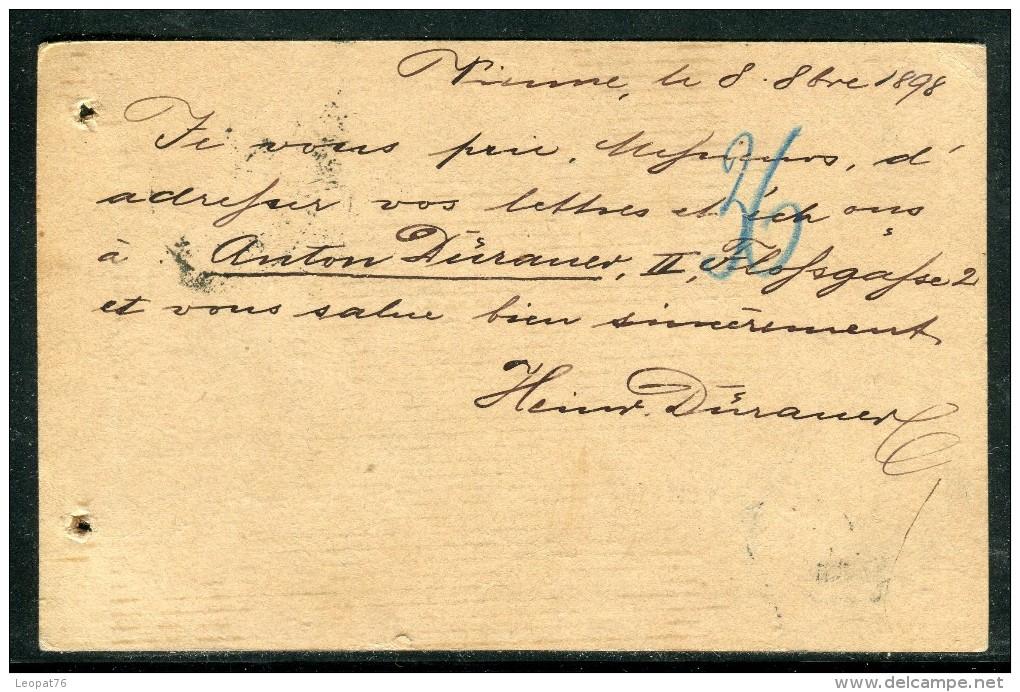 Vienne, le 8. 8bre 1898
Je vous prie, Messieurs, d'
adresser vos lettres et éch ons
à Anton Dürauer, II, Flossgasse 2
et vous salue bien sincèrement
Heinr. Dürauer
Leopat76
www.delcampe.net